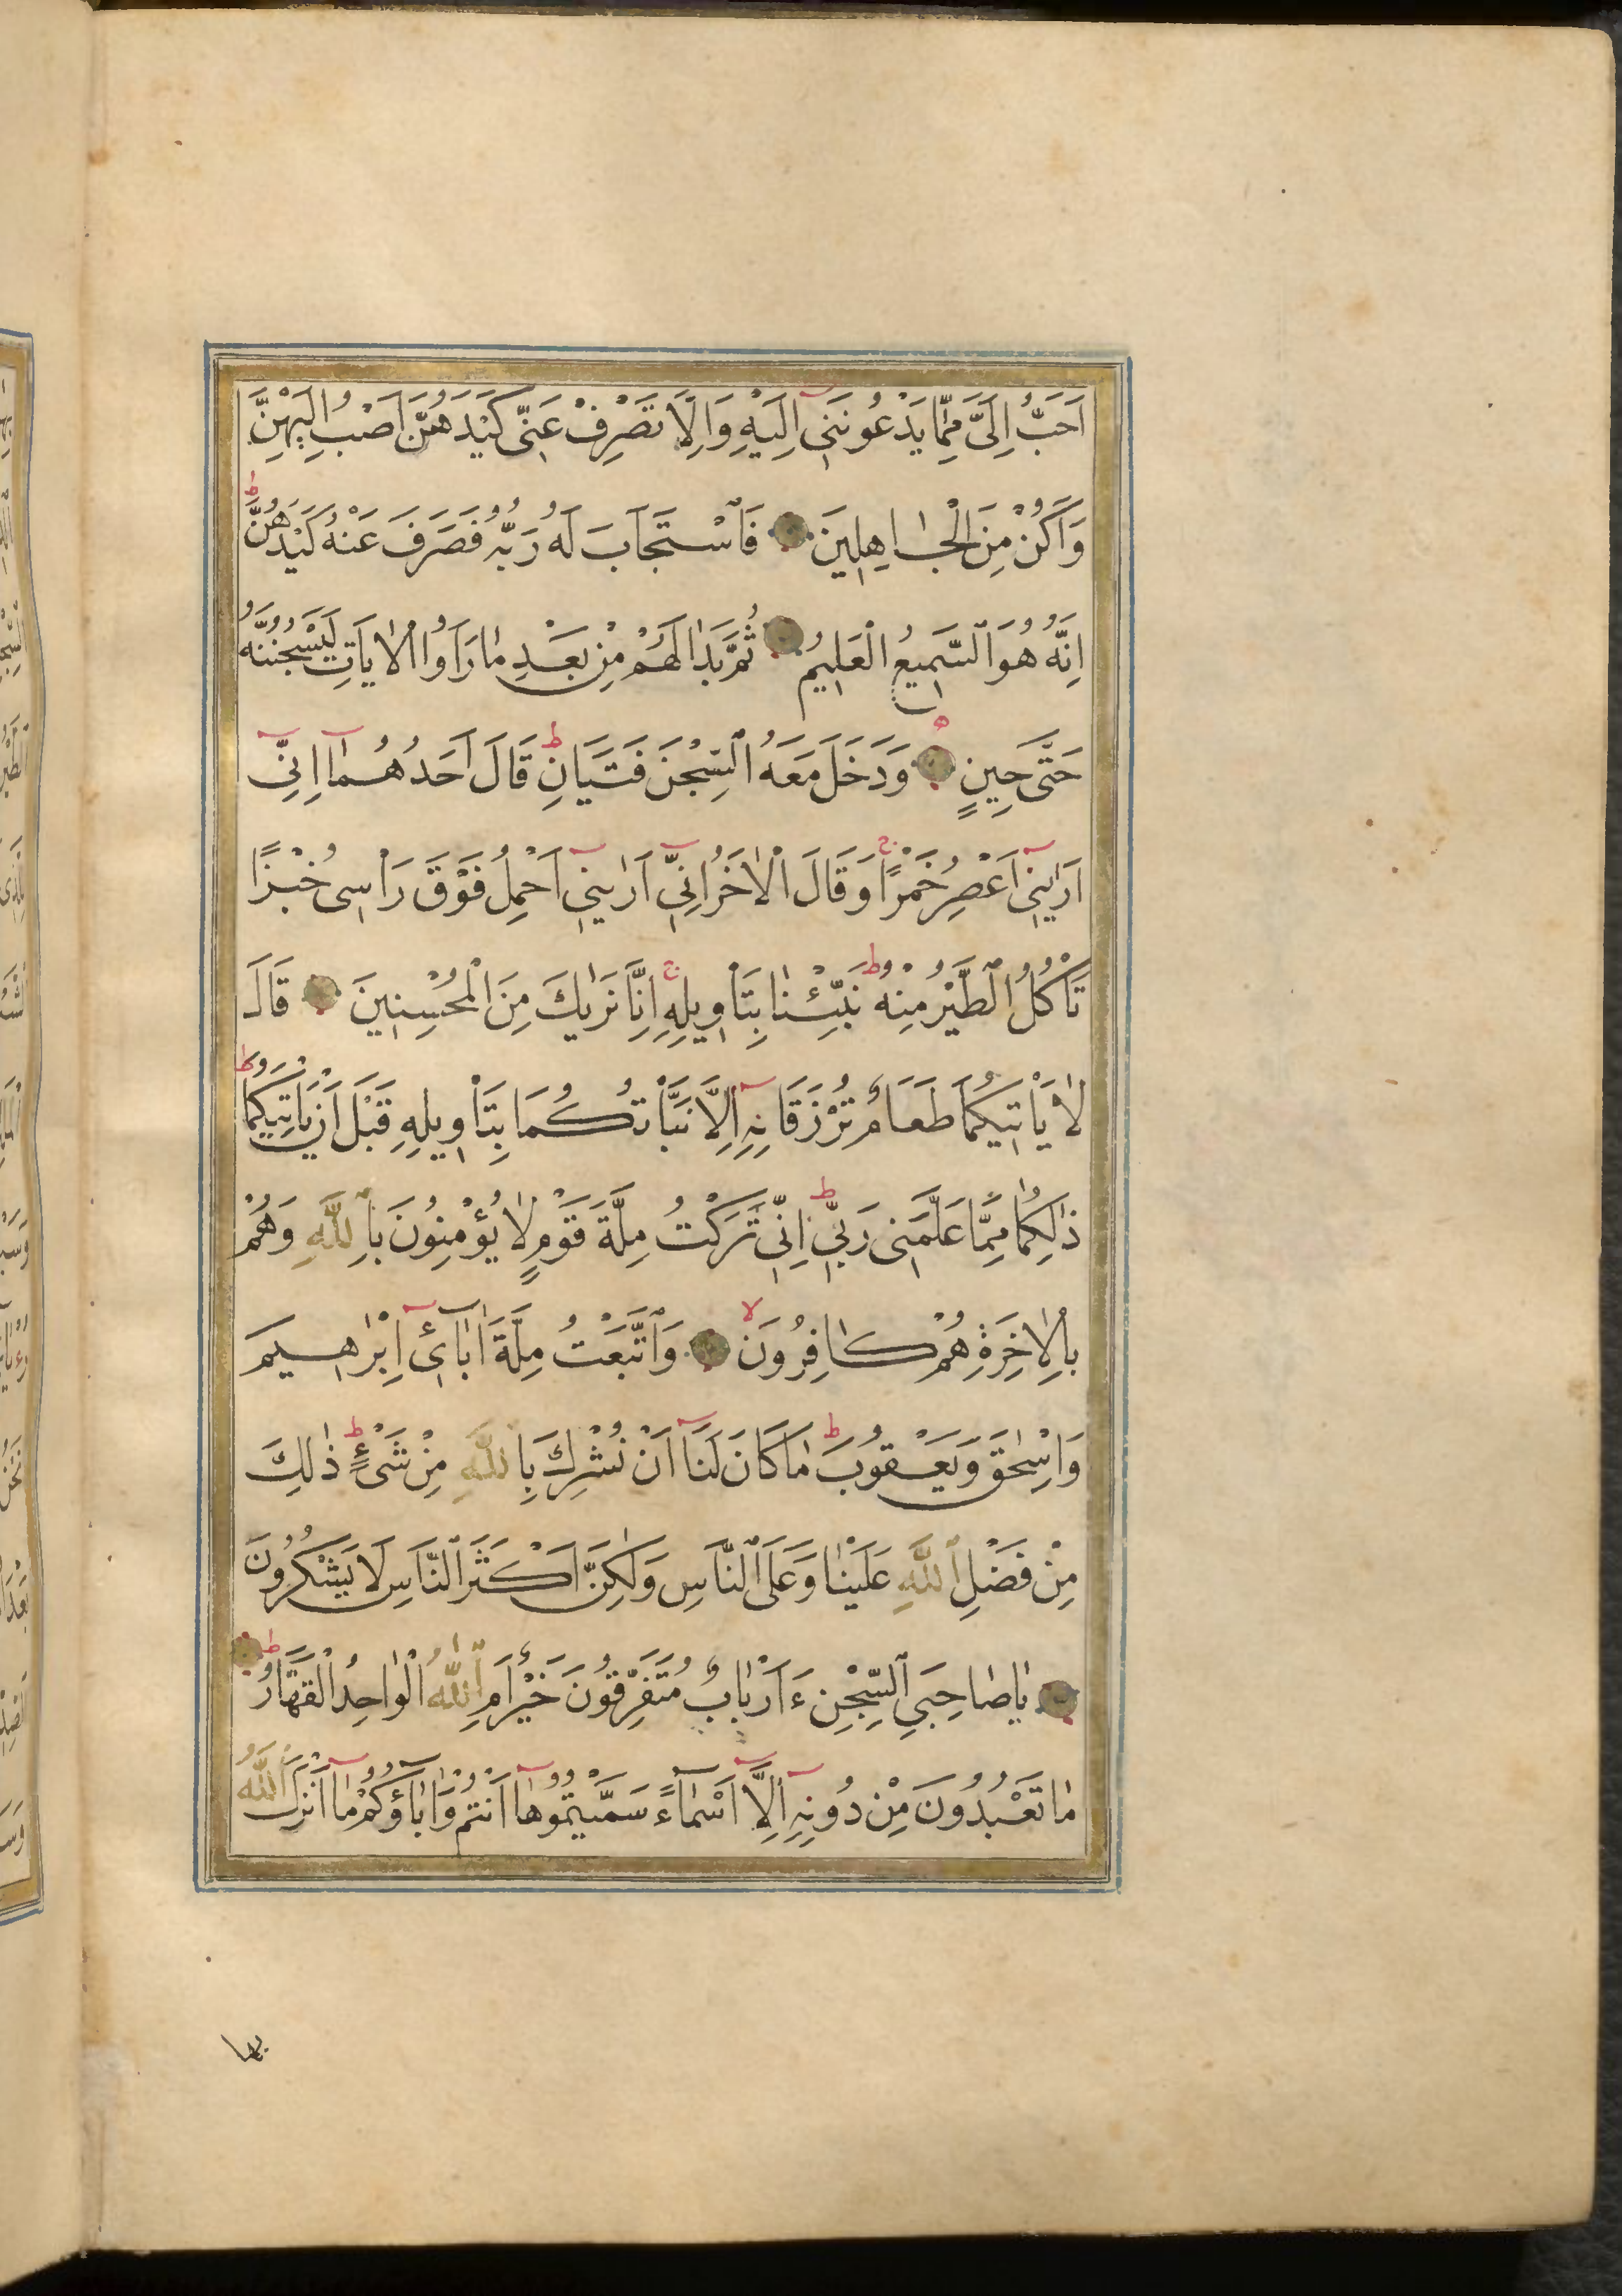 اَحَبُّ اِلَيَّ مِمَّا يَدْعُونَنِى اِلَيْهِ وَاِلَّا تَصْرِفْ عَنِّى كَيْدَهُنَّ اَصْبُ اِلَيْهِنَّ
وَاَكُنْ مِنَ الْجَاهِلِينَ فَاسْتَجَابَ لَهُ رَبُّهُ فَصَرَفَ عَنْهُ كَيْدَهُنَّ ط
اِنَّهُ هُوَ السَّمِيعُ الْعَلِيمُ ثُمَّ بَدَا لَهُمْ مِنْ بَعْدِ مَا رَاَوُا الْاٰيَاتِ لَيَسْجُنُنَّهُ
حَتّٰى حِينٍ وَدَخَلَ مَعَهُ السِّجْنَ فَتَيَانِ ط قَالَ اَحَدُهُمَا اِنِّى
اَرٰينِى اَعْصِرُ خَمْرًا ج وَقَالَ الْاٰخَرُ اِنِّى اَرٰينِى اَحْمِلُ فَوْقَ رَاْسِى خُبْزًا
تَاْكُلُ الطَّيْرُ مِنْهُ ط نَبِّئْنَا بِتَاْوِيلِهِ ج اِنَّا نَرٰيكَ مِنَ الْمُحْسِنِينَ قَالَ
لَا يَاْتِيكُمَا طَعَامٌ تُرْزَقَانِهِ اِلَّا نَبَّاْتُكُمَا بِتَاْوِيلِهِ قَبْلَ اَنْ يَاْتِيَكُمَا ط
ذٰلِكُمَا مِمَّا عَلَّمَنِى رَبِّى ط اِنِّى تَرَكْتُ مِلَّةَ قَوْمٍ لَا يُؤْمِنُونَ بِاللّٰهِ وَهُمْ
بِالْاٰخِرَةِ هُمْ كَافِرُونَ لا وَاتَّبَعْتُ مِلَّةَ اٰبَائِ اِبْرٰهِيمَ
وَاِسْحٰقَ وَيَعْقُوبَ ط مَا كَانَ لَنَا اَنْ نُشْرِكَ بِاللّٰهِ مِنْ شَىْءٍ ط ذٰلِكَ
مِنْ فَضْلِ اللّٰهِ عَلَيْنَا وَعَلَى النَّاسِ وَلٰكِنَّ اَكْثَرَ النَّاسِ لَا يَشْكُرُونَ
يَا صَاحِبَىِ السِّجْنِ ءَاَرْبَابٌ مُتَفَرِّقُونَ خَيْرٌ اَمِ اللّٰهُ الْوَاحِدُ الْقَهَّارُ ط
مَا تَعْبُدُونَ مِنْ دُونِهِ اِلَّا اَسْمَاءً سَمَّيْتُمُوهَا اَنْتُمْ وَاٰبَاؤُكُمْ مَا اَنْزَلَ اللّٰهُ
بها